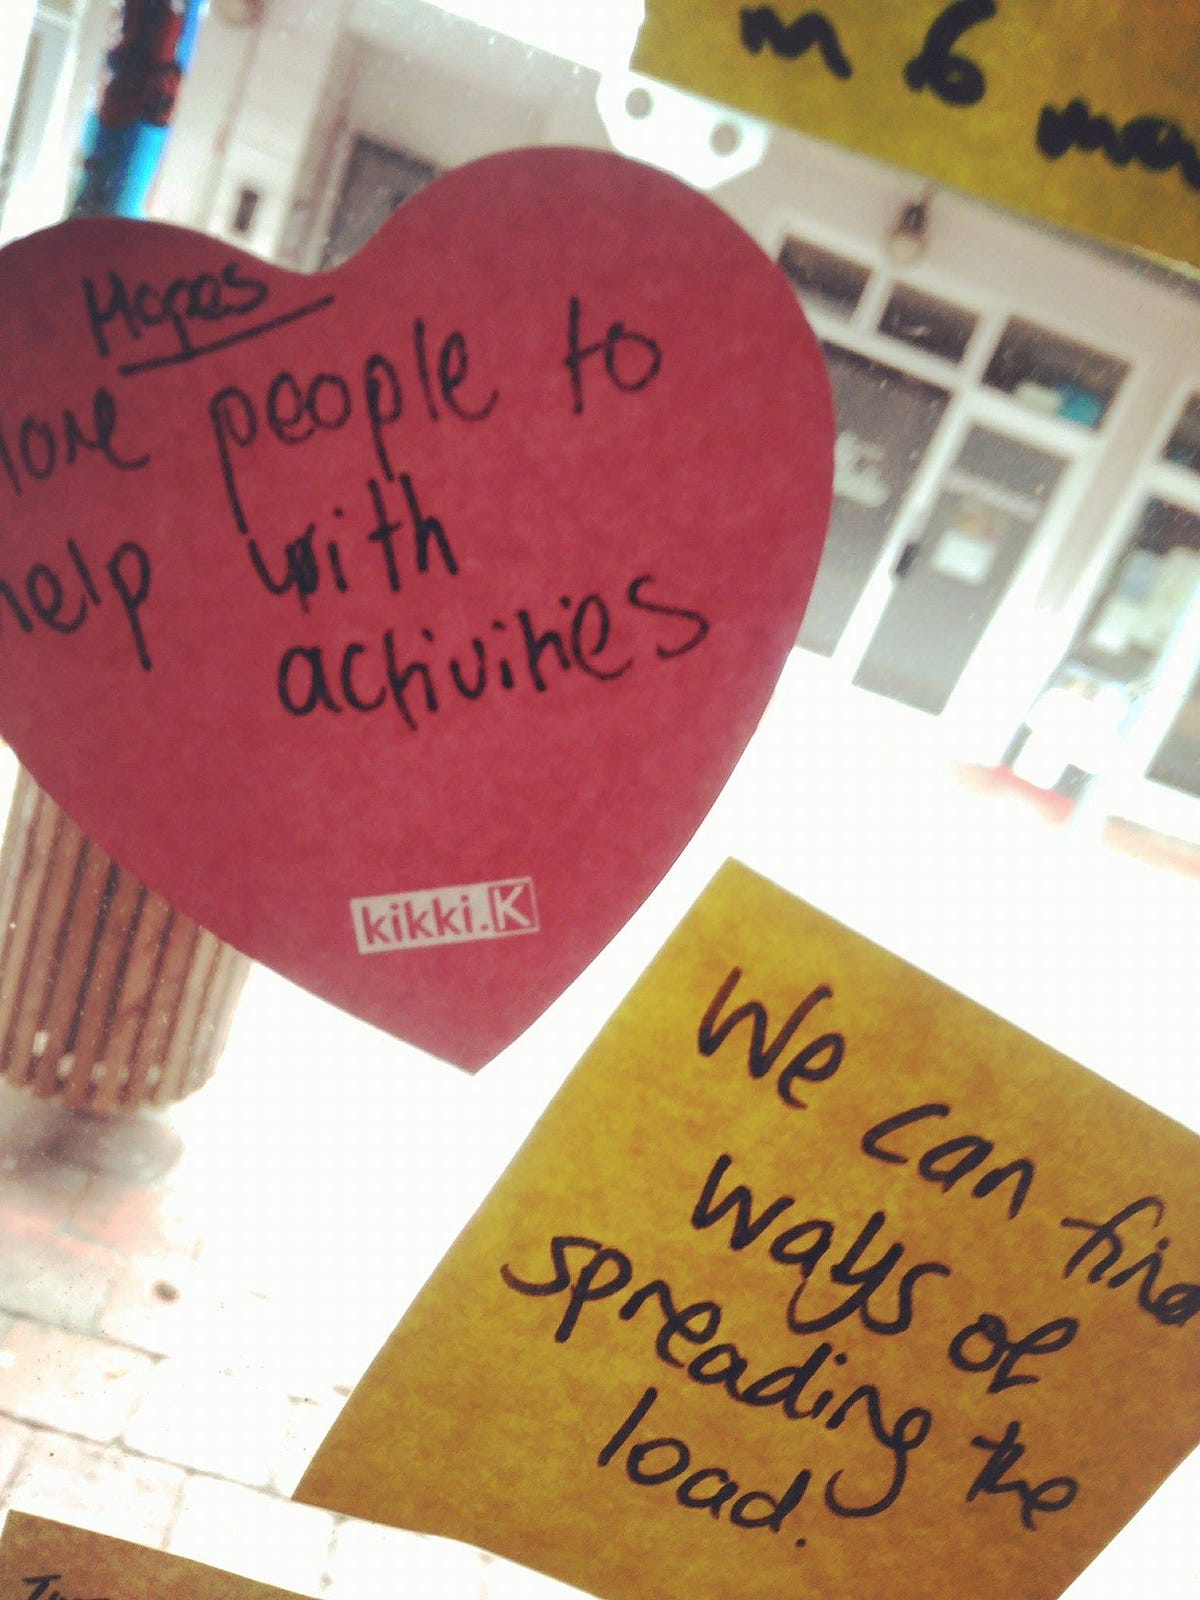 in 6
Hopes
More people to
help with
activities
kikki.K
We can find
ways of
spreading the
load.